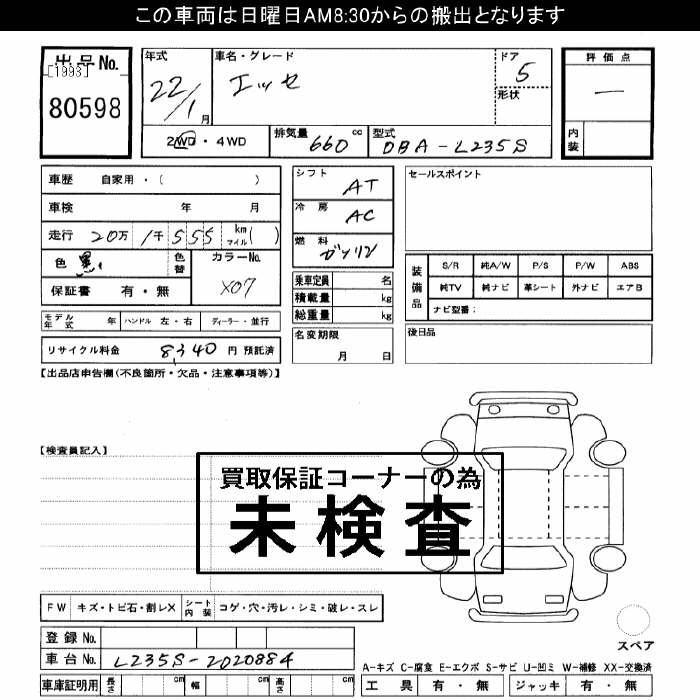 この車両は日曜日AM8:30からの搬出となります
出品No.
[1993]
80598
年式
22/1月
2WD・4WD
車名・グレード
エッセ
ドア
5
形状
排気量 660 cc
型式 DBA-L235S
評価点
ー
内装
車歴 自家用・( )
車検 年 月
走行 20万 1千555 km マイル( )
色 黒
色替
カラーNo.
X07
保証書 有・無
モデル年式 年 ハンドル 左・右 ディーラー・並行
リサイクル料金 8,340 円 預託済
シフト AT
冷房 AC
燃料 ガソリン
乗車定員 名
積載量 kg
総重量 kg
名変期限
月 日
セールスポイント
装備品
S/R 純A/W P/S P/W ABS
純TV 純ナビ 革シート 外ナビ エアB
ナビ型番：
後日品
【出品店申告欄(不良箇所・欠品・注意事項等)】
【検査員記入】
買取保証コーナーの為
未検査
FW キズ・トビ石・割レX シート内装 コゲ・穴・汚レ・シミ・破レ・スレ
登録No.
車台No. L235S-2020884
車庫証明用 長さ cm 幅 cm 高さ cm
スペア
A-キズ C-腐食 E-エクボ S-サビ U-凹ミ W-補修 XX-交換済
工具 有・無 ジャッキ 有・無